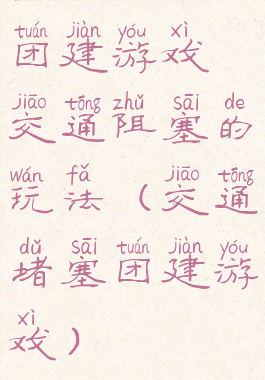 tuán jiàn yóu xì
团建游戏
jiāo tōng zhǔ sāi de
交通阻塞的
wán fǎ jiāo tōng
玩法（交通
dǔ sāi tuán jiàn yóu
堵塞团建游
xì
戏）